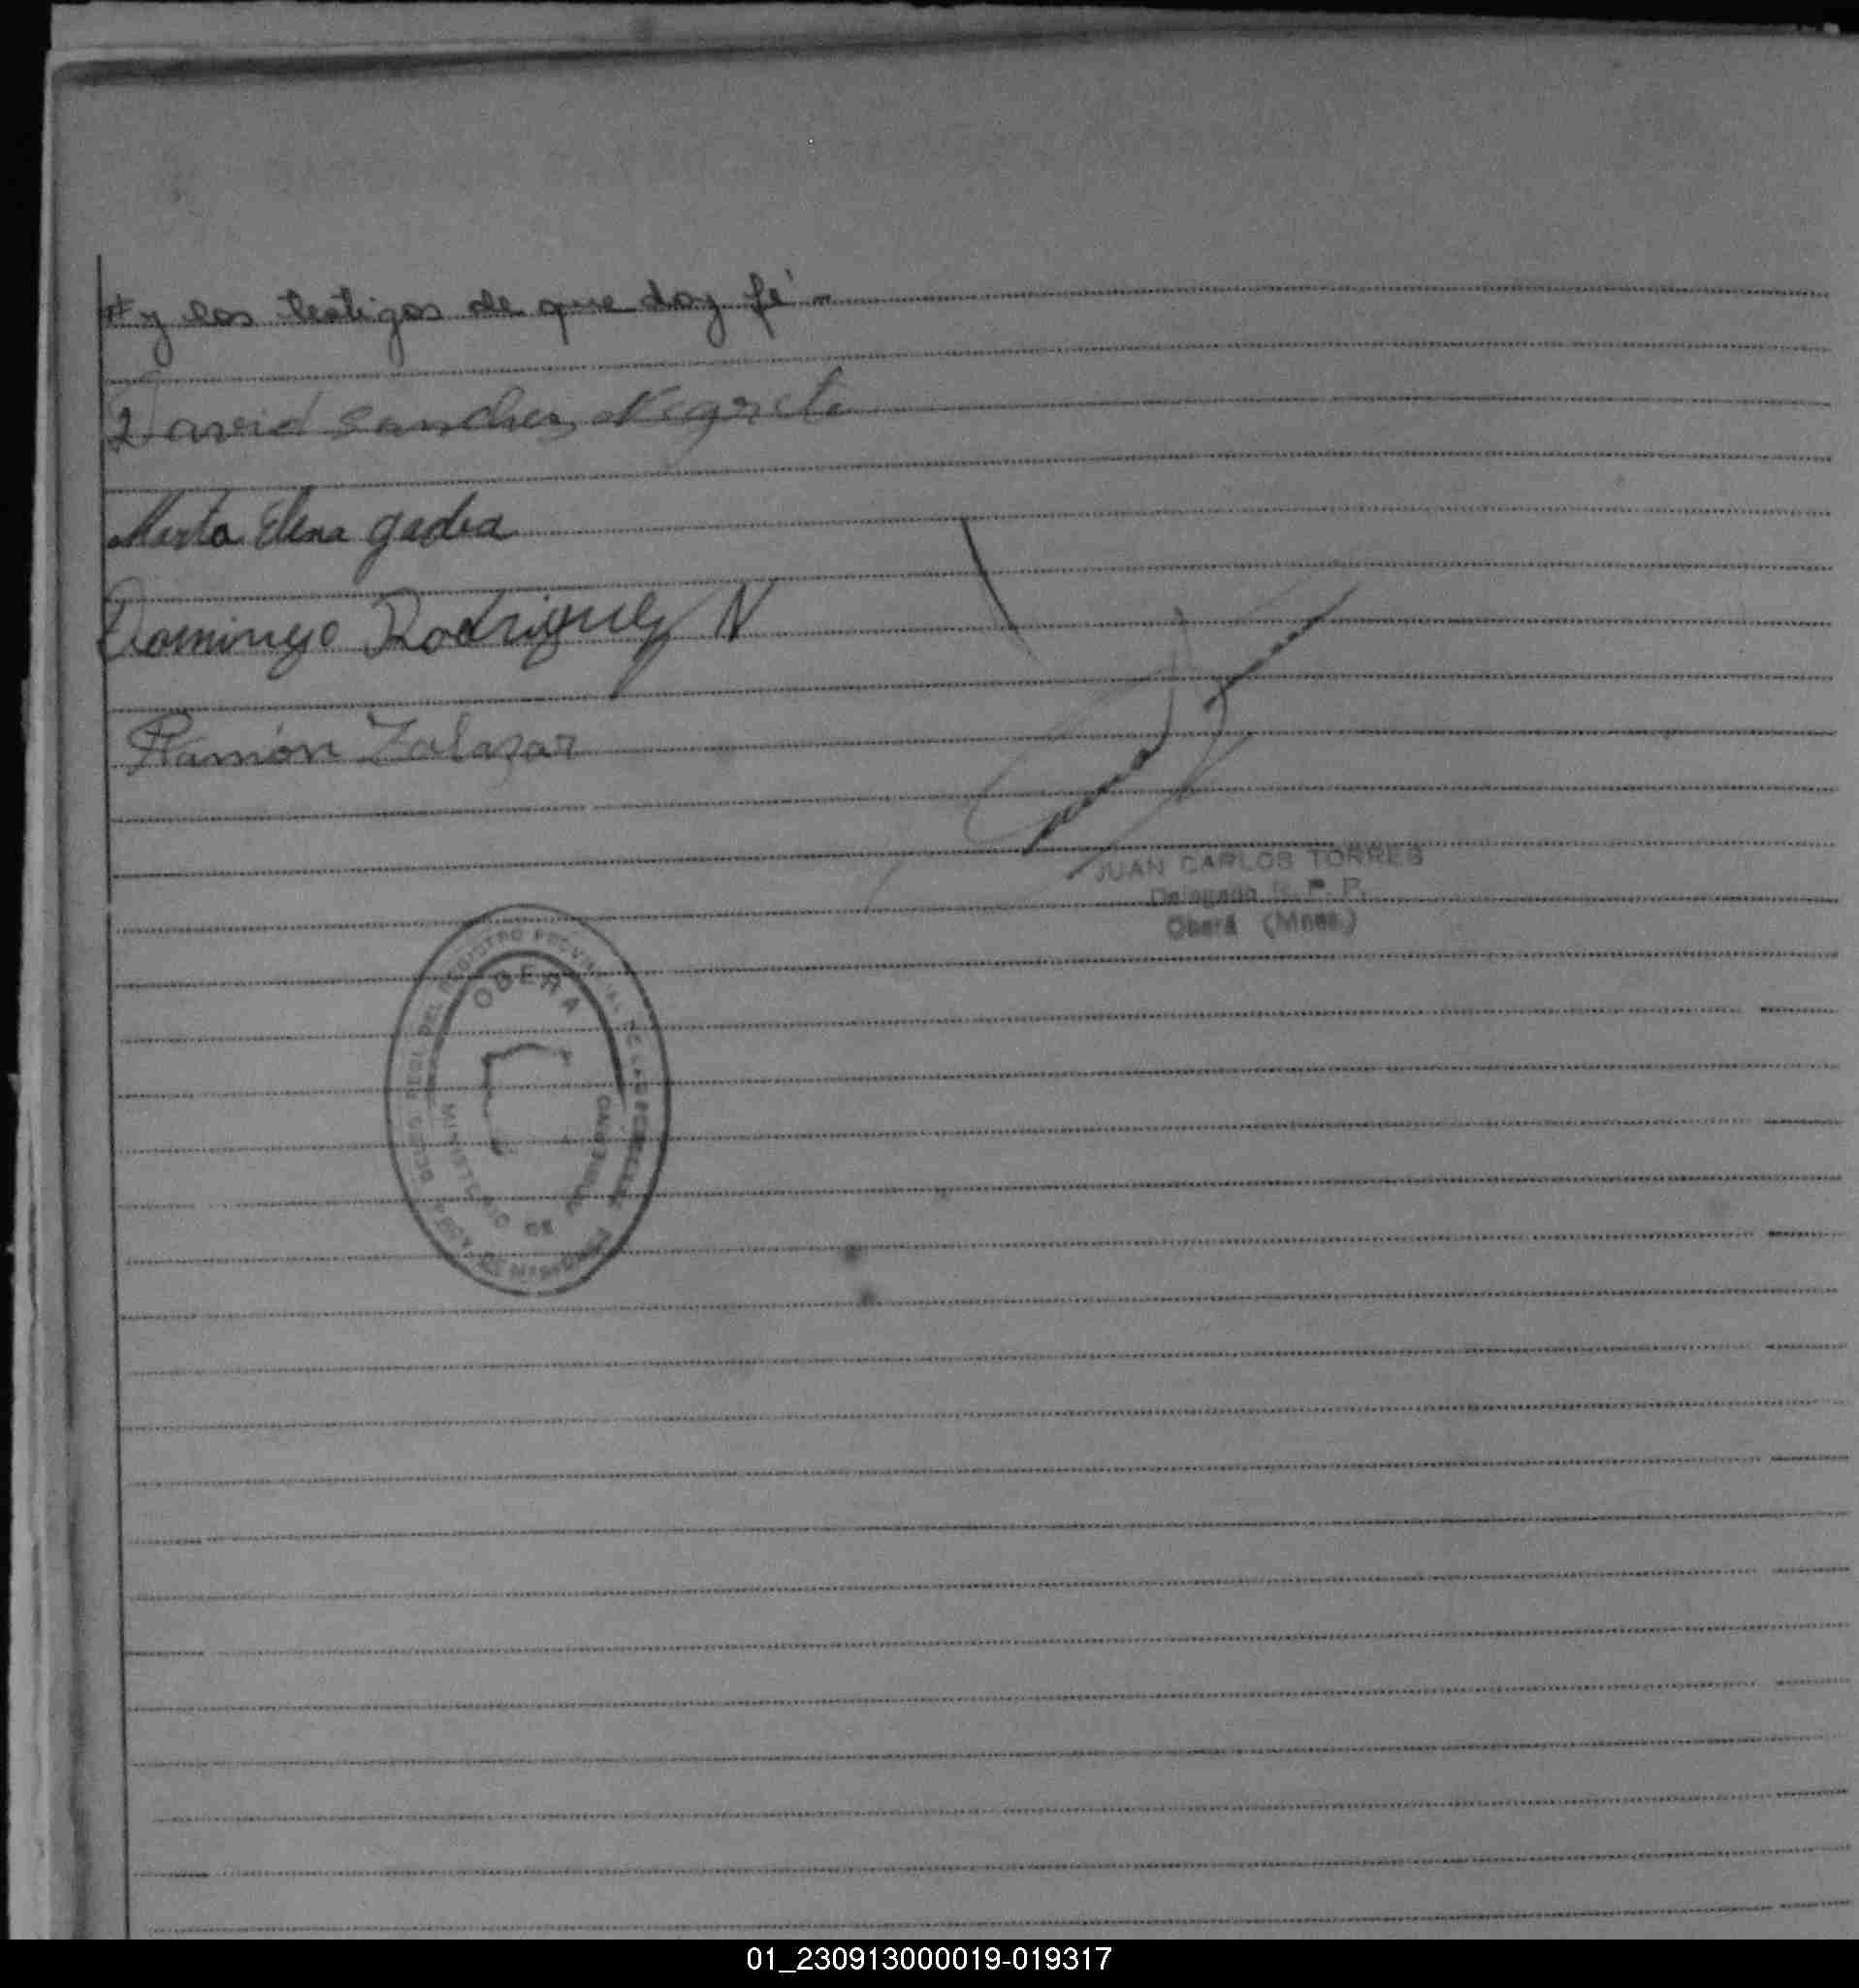 # y los testigos de que doy fé.-
David Sanchez Negrete
Marta Elena gadea
Domingo Rodriguez N
Ramón Zalazar
JUAN CARLOS TORRES
Delegado R. P. P.
Oberá (Mnes.)
DEL REGISTRO PROVINCIAL DE LAS PERSONAS
OBERA
MINISTERIO DE GOBIERNO
DE MISIONES
01_230913000019-019317